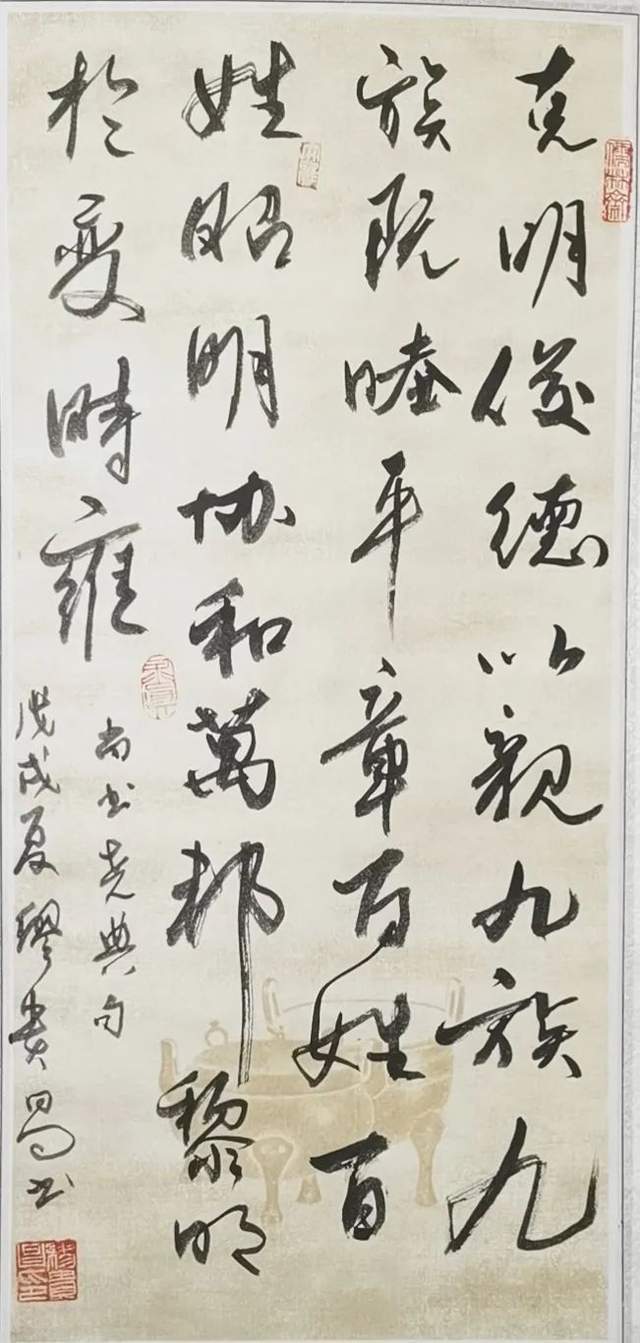 克明俊德以親九族九
族既睦平章百姓百
姓昭明协和萬邦黎明
於变時雍
尚书尧典句
戊戌夏繆貴昌书